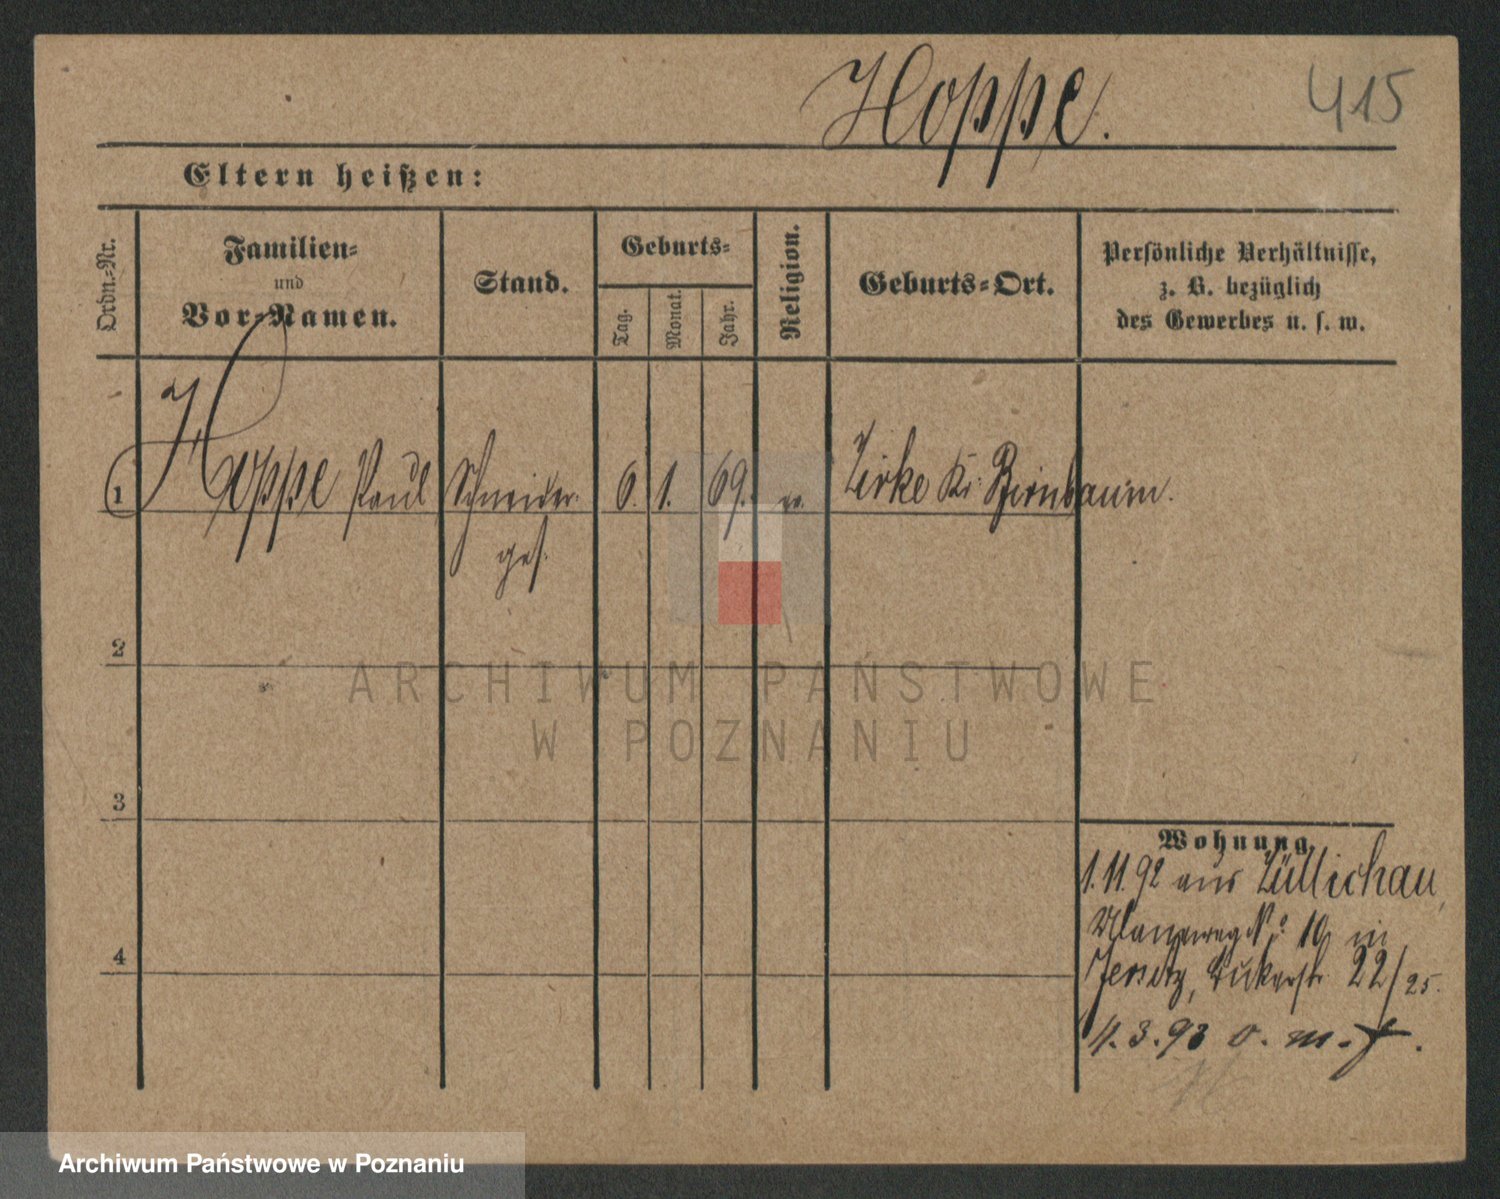 Hoppe.
415
Eltern heißen:
Ordn.-Nr.
Familien-
und
Vor-Namen.
Stand.
Geburts-
Tag.
Monat.
Jahr.
Religion.
Geburts-Ort.
Persönliche Verhältnisse,
z. B. bezüglich
des Gewerbes u. s. w.
1 Hoppe Paul Schneider- 6. 1. 69. ev. Zirke Kr. Birnbaum.
ges.
2
ARCHIWUM PAŃSTWOWE
W POZNANIU
3
Wohnung.
1.11.92 aus Züllichau,
No: 10 in
4
Jersitz, 22/25.
4.3.93 o. m. f.
Archiwum Państwowe w Poznaniu